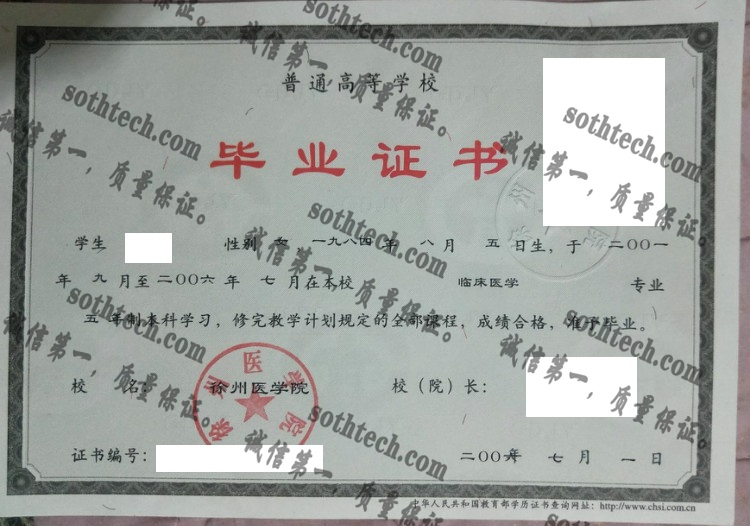 普通高等学校
毕业证书
学生 性别 女 一九八四年 八月 五日生，于二〇〇一
年 九月至二〇〇六年 七月在本校 临床医学 专业
五年制本科学习，修完教学计划规定的全部课程，成绩合格，准予毕业。
校 名： 徐州医学院 校（院）长：
证书编号： 二〇〇六年 七月 一日
中华人民共和国教育部学历证书查询网址：http://www.chsi.com.cn
徐州医学院
sothtech.com
诚信第一，质量保证。
sothtech.com
诚信第一，质量保证。
sothtech.com
诚信第一，质量保证。
sothtech.com
诚信第一，质量保证。
sothtech.com
诚信第一，质量保证。
sothtech.com
诚信第一，质量保证。
sothtech.com
诚信第一，质量保证。
sothtech.com
诚信第一，质量保证。